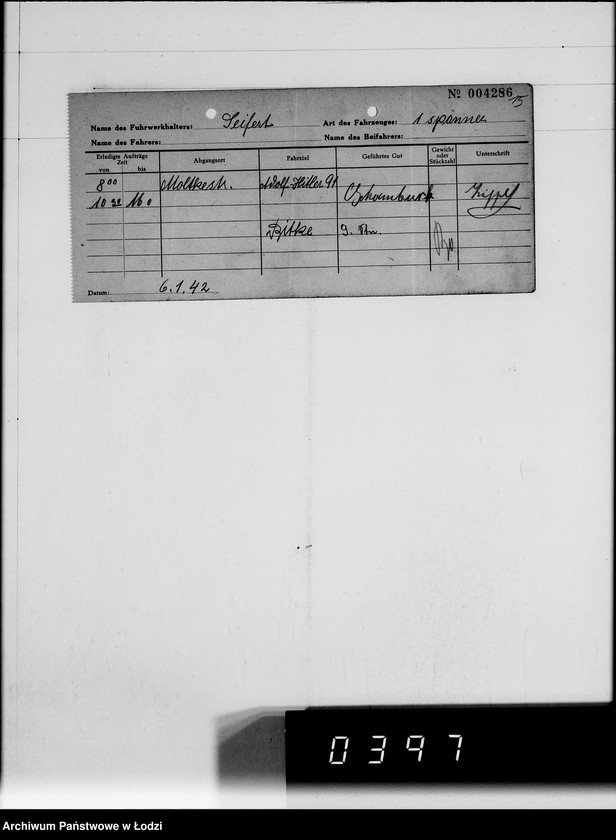 Nº 004286
15
Name des Fuhrwerkhalters: Seifert Art des Fahrzeuges: 1 spänner
Name des Fahrers: Name des Beifahrers:
Erledigte Aufträge Zeit von bis Abgangsort Fahrziel Geführtes Gut Gewicht oder Stückzahl Unterschrift
8 00 Moltkestr. Adolf-Hitler 91
10 30 16 0
Datum: 6.1.42
0397
Archiwum Państwowe w Łodzi